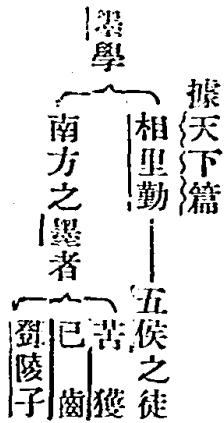 據天下篇
墨學
相里勤
五侯之徒
南方之墨者
苦獲
已齒
鄧陵子